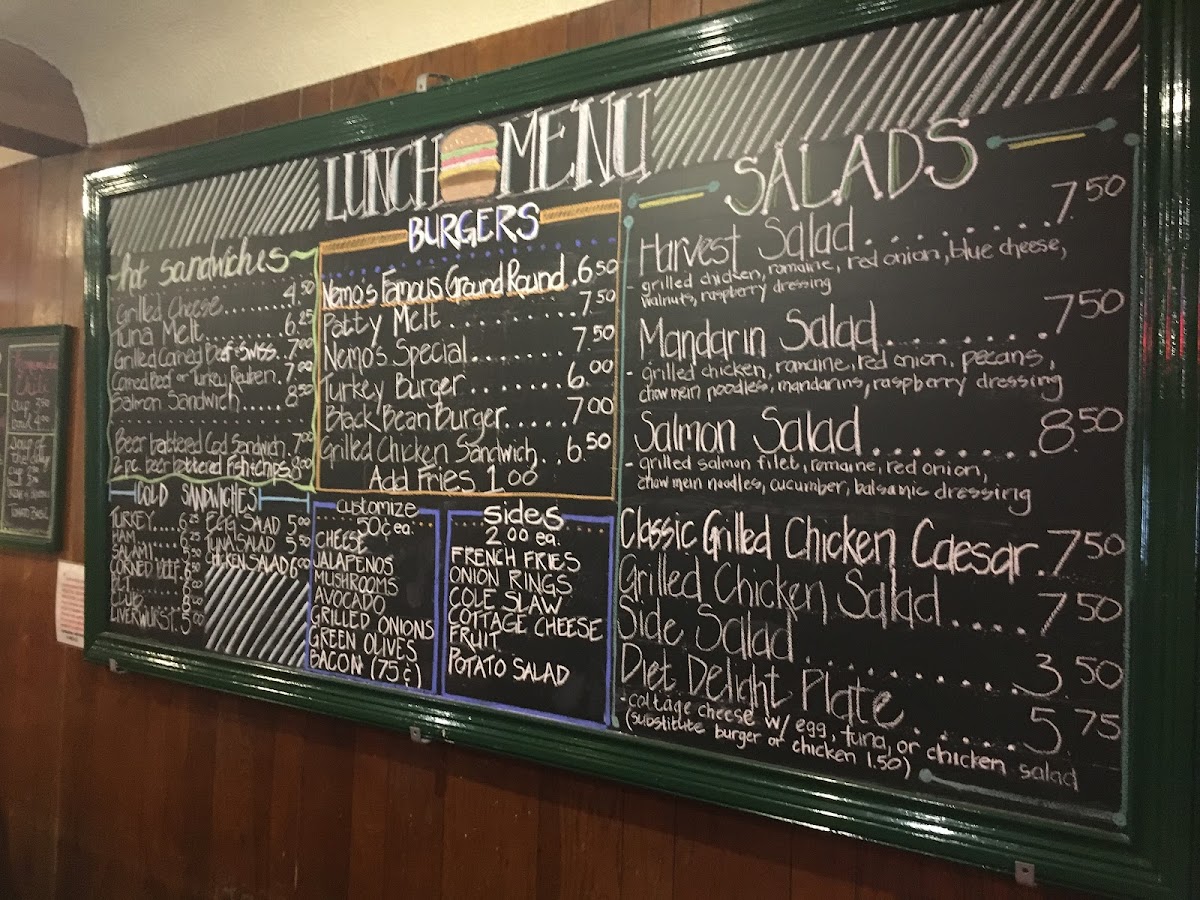 LUNCH MENU
hot sandwiches
Grilled Cheese........ 4.50
Tuna Melt......... 6.25
Grilled Corned Beef & Swiss. 7.00
Corned Beef or Turkey Reuben. 7.00
Salmon Sandwich..... 8.50
Beer battered Cod Sandwich. 7.00
2 pc. beer battered Fish & chips 8.00
COLD SANDWICHES
TURKEY.... 6.25
HAM.... 6.25
SALAMI
CORNED BEEF
BLT
CLUB
LIVERWURST. 5.00
EGG SALAD 5.00
TUNA SALAD 5.50
CHICKEN SALAD 6.00
BURGERS
Nemo's Famous Ground Round. 6.50
Patty Melt.......... 7.50
Nemo's Special....... 7.50
Turkey Burger....... 6.00
Black Bean Burger..... 7.00
Grilled Chicken Sandwich... 6.50
Add Fries 1.00
Customize
50¢ ea.
CHEESE
JALAPENOS
MUSHROOMS
AVOCADO
GRILLED ONIONS
GREEN OLIVES
BACON (75¢)
sides
2.00 ea.
FRENCH FRIES
ONION RINGS
COLE SLAW
COTTAGE CHEESE
FRUIT
POTATO SALAD
SALADS
Harvest Salad.......... 7.50
- grilled chicken, romaine, red onion, blue cheese,
walnuts, raspberry dressing
Mandarin Salad......... 7.50
- grilled chicken, romaine, red onion, pecans,
chow mein noodles, mandarins, raspberry dressing
Salmon Salad......... 8.50
- grilled salmon filet, romaine, red onion,
chow mein noodles, cucumber, balsamic dressing
Classic Grilled Chicken Caesar. 7.50
Grilled Chicken Salad.... 7.50
Side Salad........... 3.50
Diet Delight Plate...... 5.75
- cottage cheese w/ egg, tuna, or chicken salad
(substitute burger or chicken 1.50)
Chili
Cup
Bowl 4.00
Soup of
the day